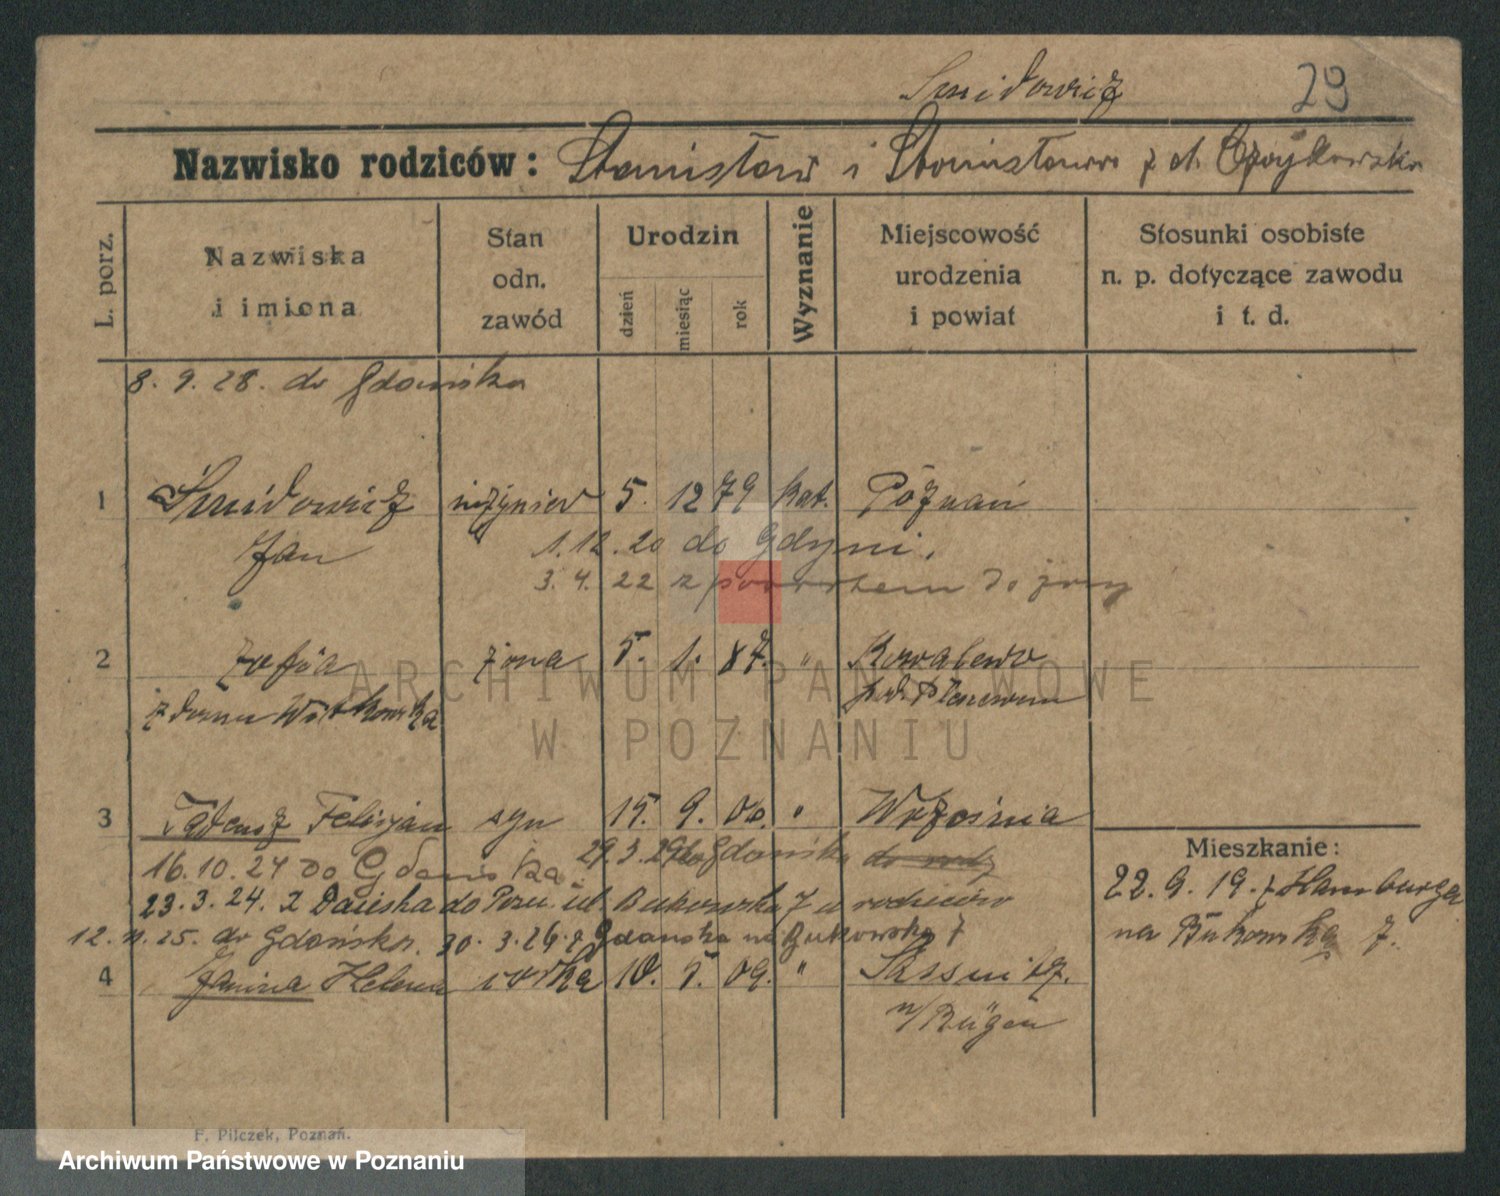 Śmidowicz 29
Nazwisko rodziców: Stanisław i Stanisława z d. Czajkowska
L. porz.
Nazwiska
i imiona
Stan
odn.
zawód
Urodzin
dzień
miesiąc
rok
Wyznanie
Miejscowość
urodzenia
i powiat
Stosunki osobiste
n. p. dotyczące zawodu
i t. d.
8. 9. 28. do Gdańska
1 Śmidowicz inżynier 5. 12 79 kat. Poznań
Jan 1.12.20 do Gdyni.
3. 4. 22 z powrotem do żony
2 Zofia żona 5. 1. 87. " Kowalewo
z domu Wittkowska Pleszewem
3 Tadeusz Felicjan syn 15. 9. 06. " Września
16.10.24 do Gdańska 29.3. Gdańska
23.3.24. z Dańska do Pozn. ul. Bukowska 7 u rodziców
12. 11. 25. do Gdańska. 30. 3. 26 z Gdańska na Bukowską 7
4 Janina Helena córka 10. 5. 09. " Sassnitz.
n/Rügen
Mieszkanie:
22. 9. 19. z Hamburga
na Bukowską 7.
F. Pilczek, Poznań.
ARCHIWUM PAŃSTWOWE
W POZNANIU
Archiwum Państwowe w Poznaniu